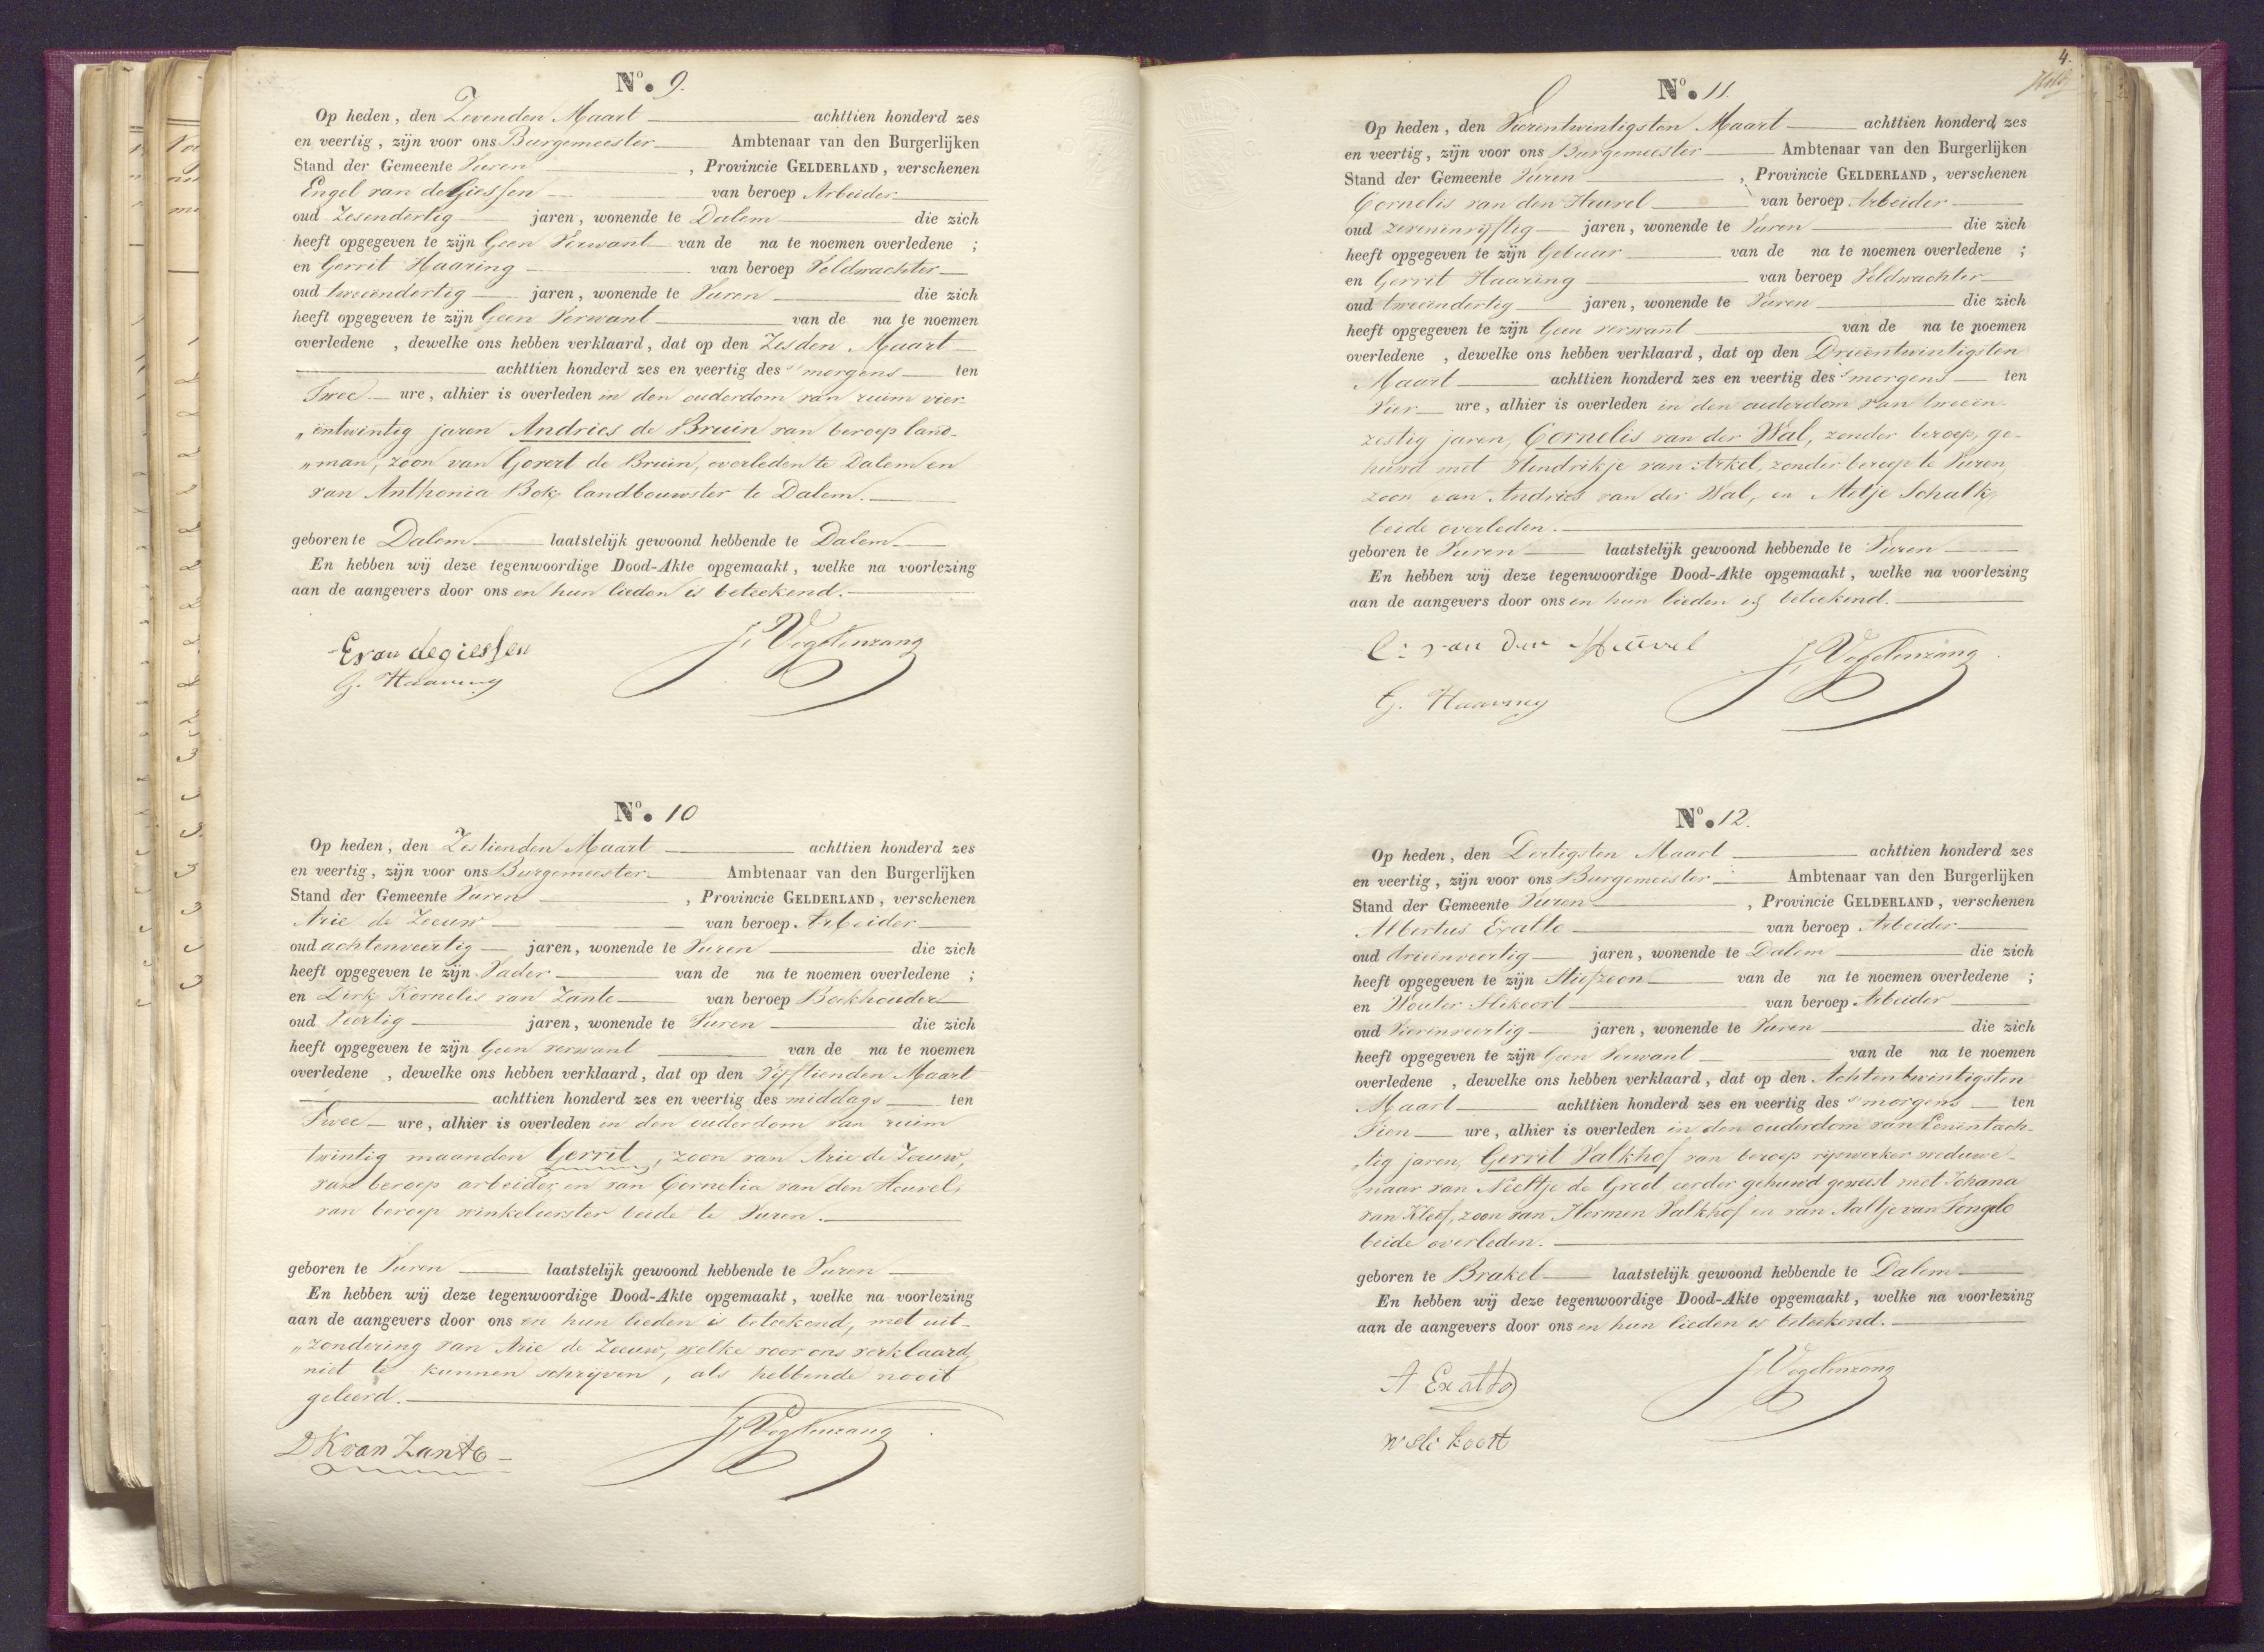 No. 9.
Op heden, den Zevenden Maart achttien honderd zes
en veertig, zijn voor ons Burgemeester Ambtenaar van den Burgerlijken
Stand der Gemeente Vuren, Provincie GELDERLAND, verschenen
Engel van de Giessen van beroep Arbeider
oud Zesendertig jaren, wonende te Dalem die zich
heeft opgegeven te zijn Geen Verwant van de na te noemen overledene ;
en Gerrit Haaring van beroep Veldwachter
oud tweeendertig jaren, wonende te Vuren die zich
heeft opgegeven te zijn Geen Verwant van de na te noemen
overledene , dewelke ons hebben verklaard, dat op den Zesden Maart
achttien honderd zes en veertig des 's morgens ten
Twee ure, alhier is overleden in den ouderdom van ruim vier-
„entwintig jaren Andries de Bruin van beroep land-
„man, zoon van Govert de Bruin, overleden te Dalem en
van Anthonia Bok, landbouwster te Dalem.
geboren te Dalem laatstelijk gewoond hebbende te Dalem
En hebben wij deze tegenwoordige Dood-Akte opgemaakt, welke na voorlezing
aan de aangevers door ons en hun lieden is beteekend.
E van de giessen
J. Vogelenzang
G. Haaring
No. 10
Op heden, den Zestienden Maart achttien honderd zes
en veertig, zijn voor ons Burgemeester Ambtenaar van den Burgerlijken
Stand der Gemeente Vuren, Provincie GELDERLAND, verschenen
Arie de Zeeuw van beroep Arbeider
oud achtenveertig jaren, wonende te Vuren die zich
heeft opgegeven te zijn Vader van de na te noemen overledene ;
en Dirk Kornelis van Zante van beroep Boekhouder
oud Veertig jaren, wonende te Vuren die zich
heeft opgegeven te zijn Geen verwant van de na te noemen
overledene , dewelke ons hebben verklaard, dat op den Vijftienden Maart
achttien honderd zes en veertig des middags ten
Twee ure, alhier is overleden in den ouderdom van ruim
twintig maanden Gerrit, zoon van Arie de Zeeuw,
van beroep arbeider, en van Cornelia van den Heuvel,
van beroep winkelierster beide te Vuren.
geboren te Vuren laatstelijk gewoond hebbende te Vuren
En hebben wij deze tegenwoordige Dood-Akte opgemaakt, welke na voorlezing
aan de aangevers door ons en hun lieden is beteekend, met uit-
„zondering van Arie de Zeeuw, welke voor ons verklaard,
niet te kunnen schrijven, als hebbende nooit
geleerd.
J. Vogelenzang
D K van Zante
4.
No. 11.
Op heden, den Vierentwintigsten Maart achttien honderd zes
en veertig, zijn voor ons Burgemeester Ambtenaar van den Burgerlijken
Stand der Gemeente Vuren, Provincie GELDERLAND, verschenen
Cornelis van den Heuvel van beroep Arbeider
oud zevenenvijftig jaren, wonende te Vuren die zich
heeft opgegeven te zijn Gebuur van de na te noemen overledene ;
en Gerrit Haaring van beroep Veldwachter
oud tweeendertig jaren, wonende te Vuren die zich
heeft opgegeven te zijn Geen verwant van de na te noemen
overledene , dewelke ons hebben verklaard, dat op den Drieentwintigsten
Maart achttien honderd zes en veertig des 's morgens ten
Vier ure, alhier is overleden in den ouderdom van tweeen-
zestig jaren, Cornelis van der Wal, zonder beroep, ge-
huwd met Hendrikje van Arkel, zonder beroep te Vuren,
zoon van Andries van der Wal, en Metje Schalk,
beide overleden.
geboren te Vuren laatstelijk gewoond hebbende te Vuren
En hebben wij deze tegenwoordige Dood-Akte opgemaakt, welke na voorlezing
aan de aangevers door ons en hun lieden is beteekend.
C: van den Heuvel
J. Vogelenzang
G. Haaring
No. 12.
Op heden, den Dertigsten Maart achttien honderd zes
en veertig, zijn voor ons Burgemeester Ambtenaar van den Burgerlijken
Stand der Gemeente Vuren, Provincie GELDERLAND, verschenen
Albertus Exalto van beroep Arbeider
oud drieenveertig jaren, wonende te Dalem die zich
heeft opgegeven te zijn Stiefzoon van de na te noemen overledene ;
en Wouter Slikoort van beroep Arbeider
oud Vierenveertig jaren, wonende te Vuren die zich
heeft opgegeven te zijn Geen Verwant van de na te noemen
overledene , dewelke ons hebben verklaard, dat op den Achtentwintigsten
Maart achttien honderd zes en veertig des 's morgens ten
Tien ure, alhier is overleden in den ouderdom van Eenentach-
„tig jaren, Gerrit Valkhof van beroep rijswerker weduwe-
„naar van Neeltje de Groot, eerder gehuwd geweest met Johana
van Kleef, zoon van Hermen Valkhof en van Aaltje van Tongelo
beide overleden.
geboren te Brakel laatstelijk gewoond hebbende te Dalem
En hebben wij deze tegenwoordige Dood-Akte opgemaakt, welke na voorlezing
aan de aangevers door ons en hun lieden is beteekend.
J. Vogelenzang
A Exalto
W Slikoort